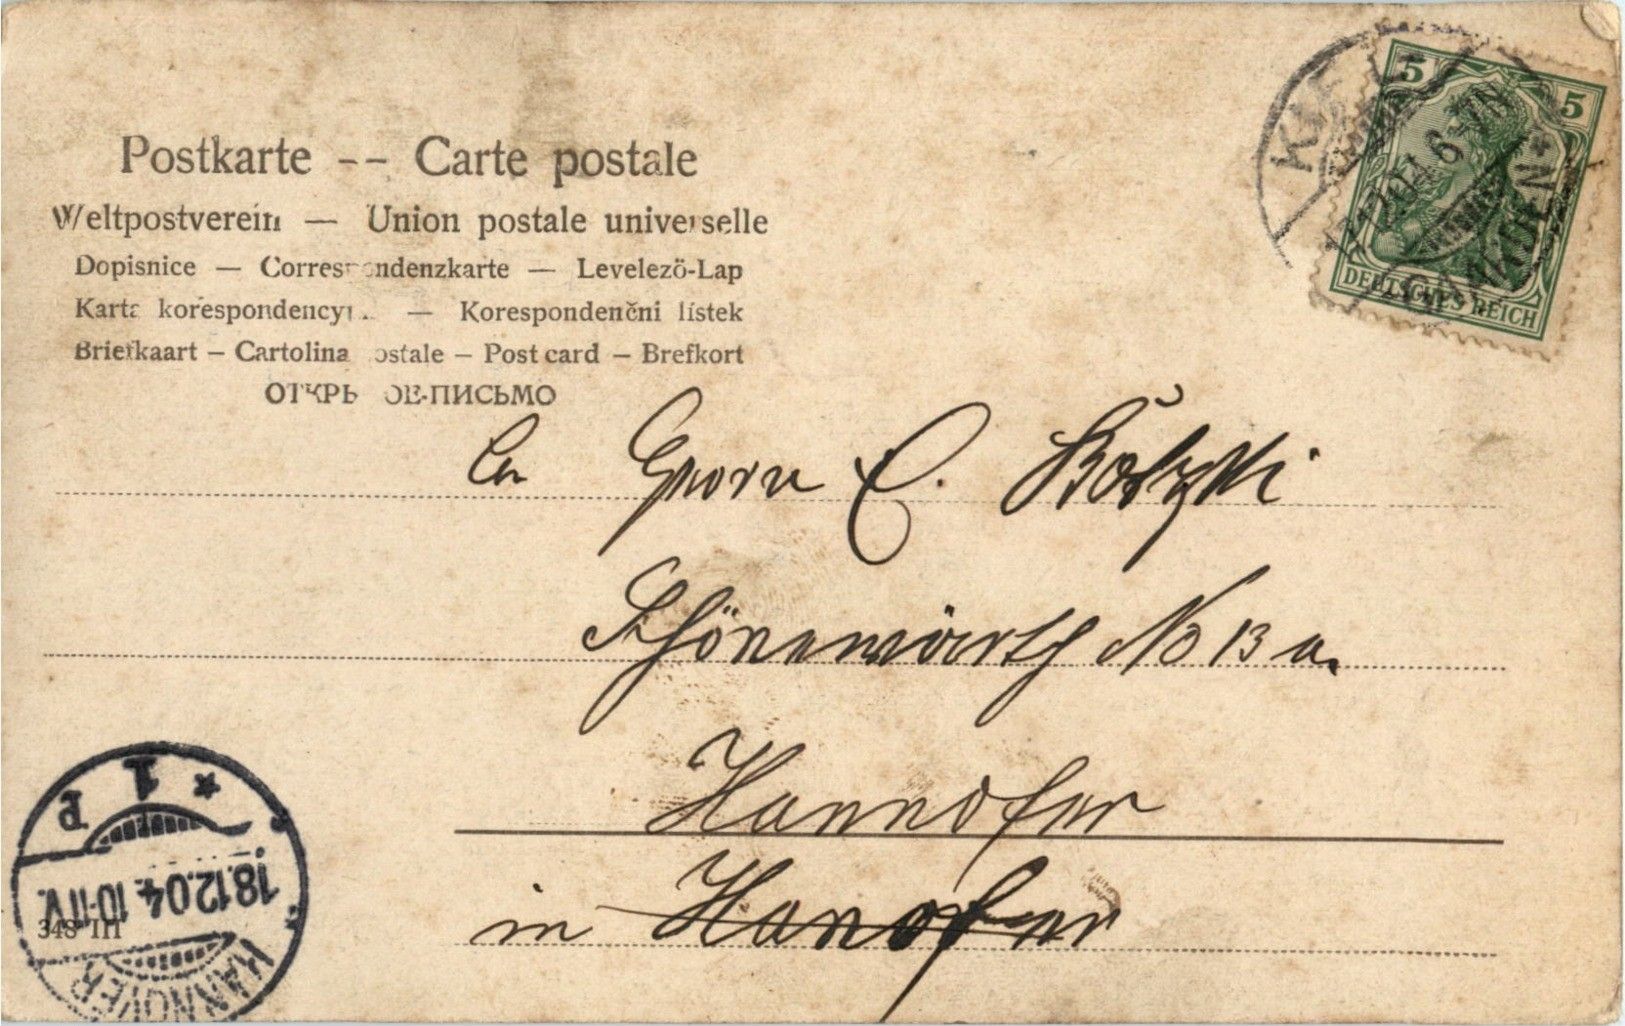 Postkarte -- Carte postale
Weltpostverein — Union postale universelle
Dopisnice — Correspondenzkarte — Levelező-Lap
Karta korespondencyj.. — Korespondenčni lístek
Briefkaart – Cartolina postale – Post card – Brefkort
ОТКРЫ ОЕ-ПИСЬМО
KIEL
17.12.04. 6-7N
GAARDEN
5
5
DEUTSCHES REICH
An Herrn E.
No 13 a.
Hannofer
in Hanofer
HANNOVER
18.12.04. 10-11V.
* 1 P
348 III